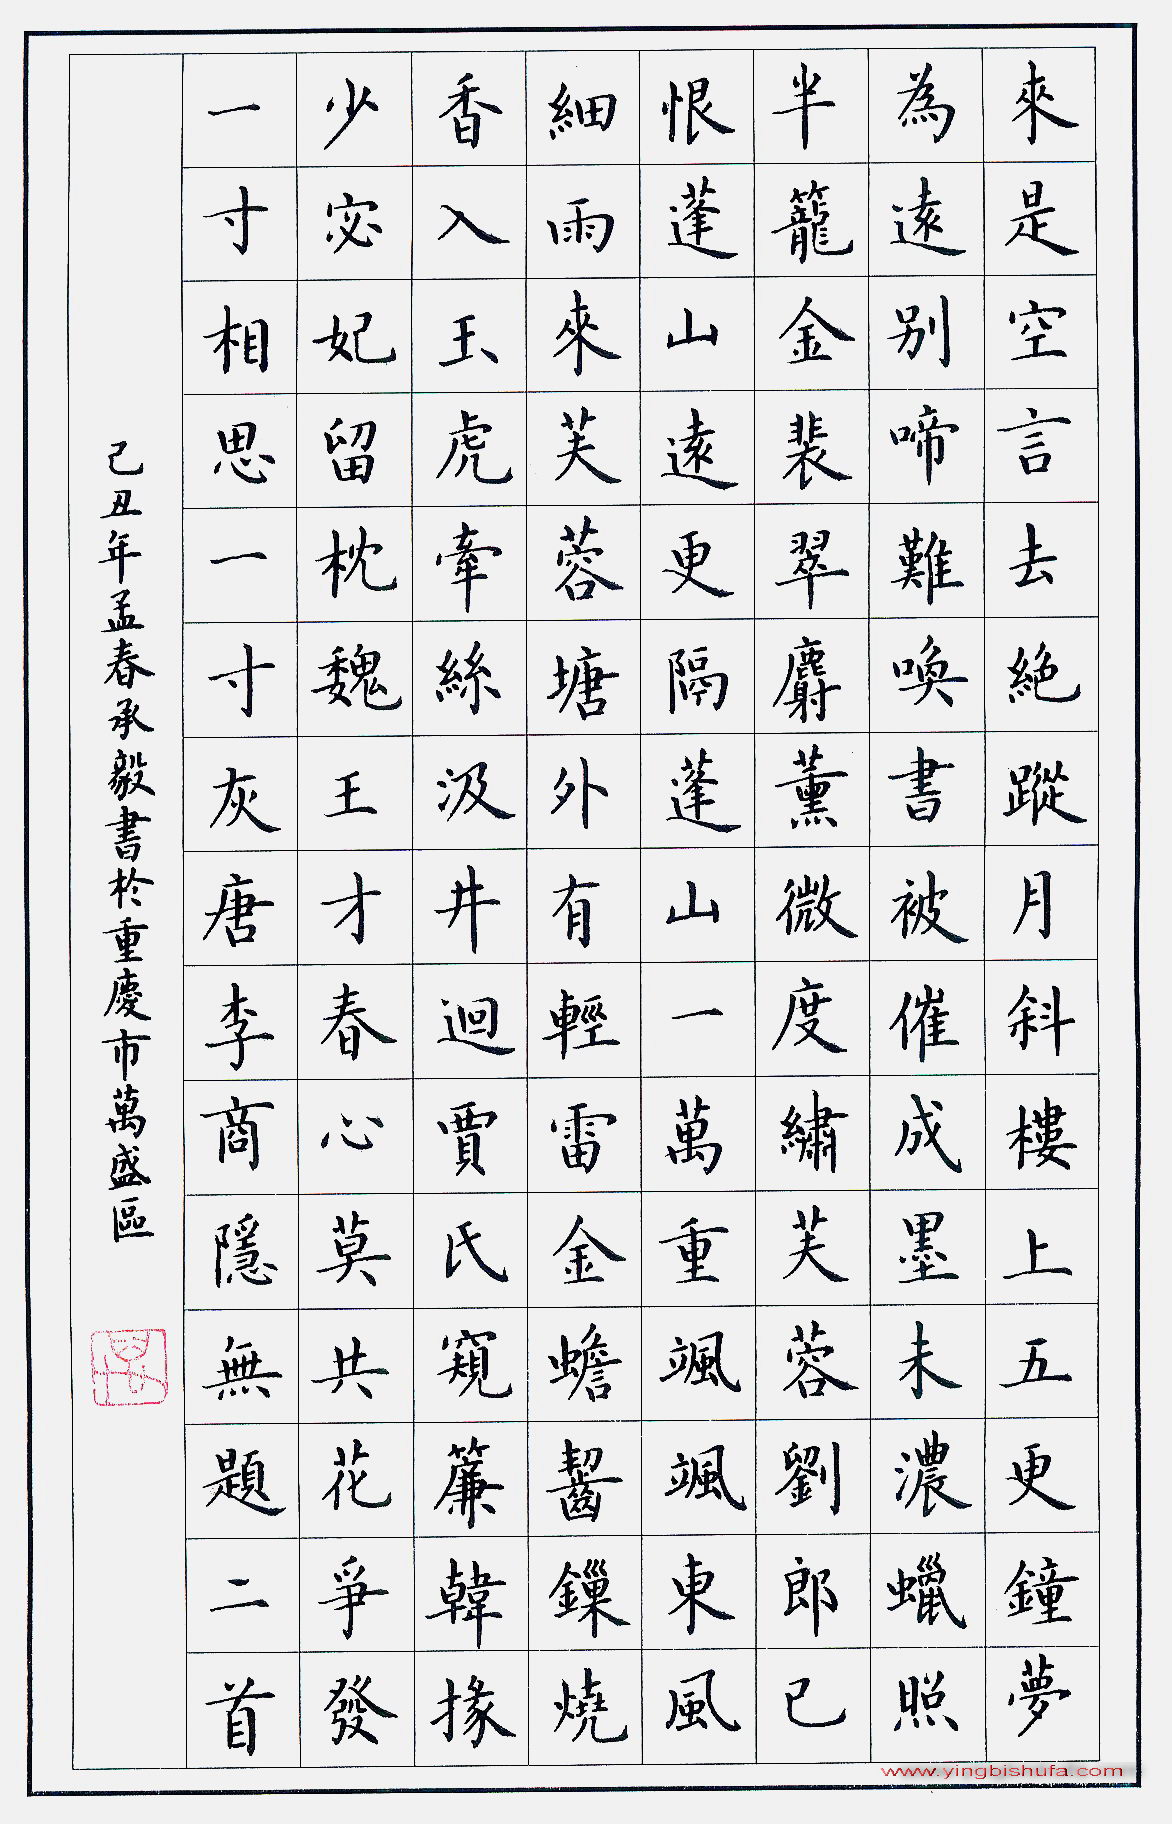 來是空言去絕蹤月斜樓上五更鐘夢
為遠別啼難喚書被催成墨未濃蠟照
半籠金裴翠麝薰微度繡芙蓉劉郎已
恨蓬山遠更隔蓬山一萬重颯颯東風
細雨來芙蓉塘外有輕雷金蟾齧鏁燒
香入玉虎牽絲汲井迴賈氏窺簾韓掾
少宓妃留枕魏王才春心莫共花爭發
一寸相思一寸灰唐李商隱無題二首
己丑年孟春承毅書於重慶市萬盛區
www.yingbishufa.com